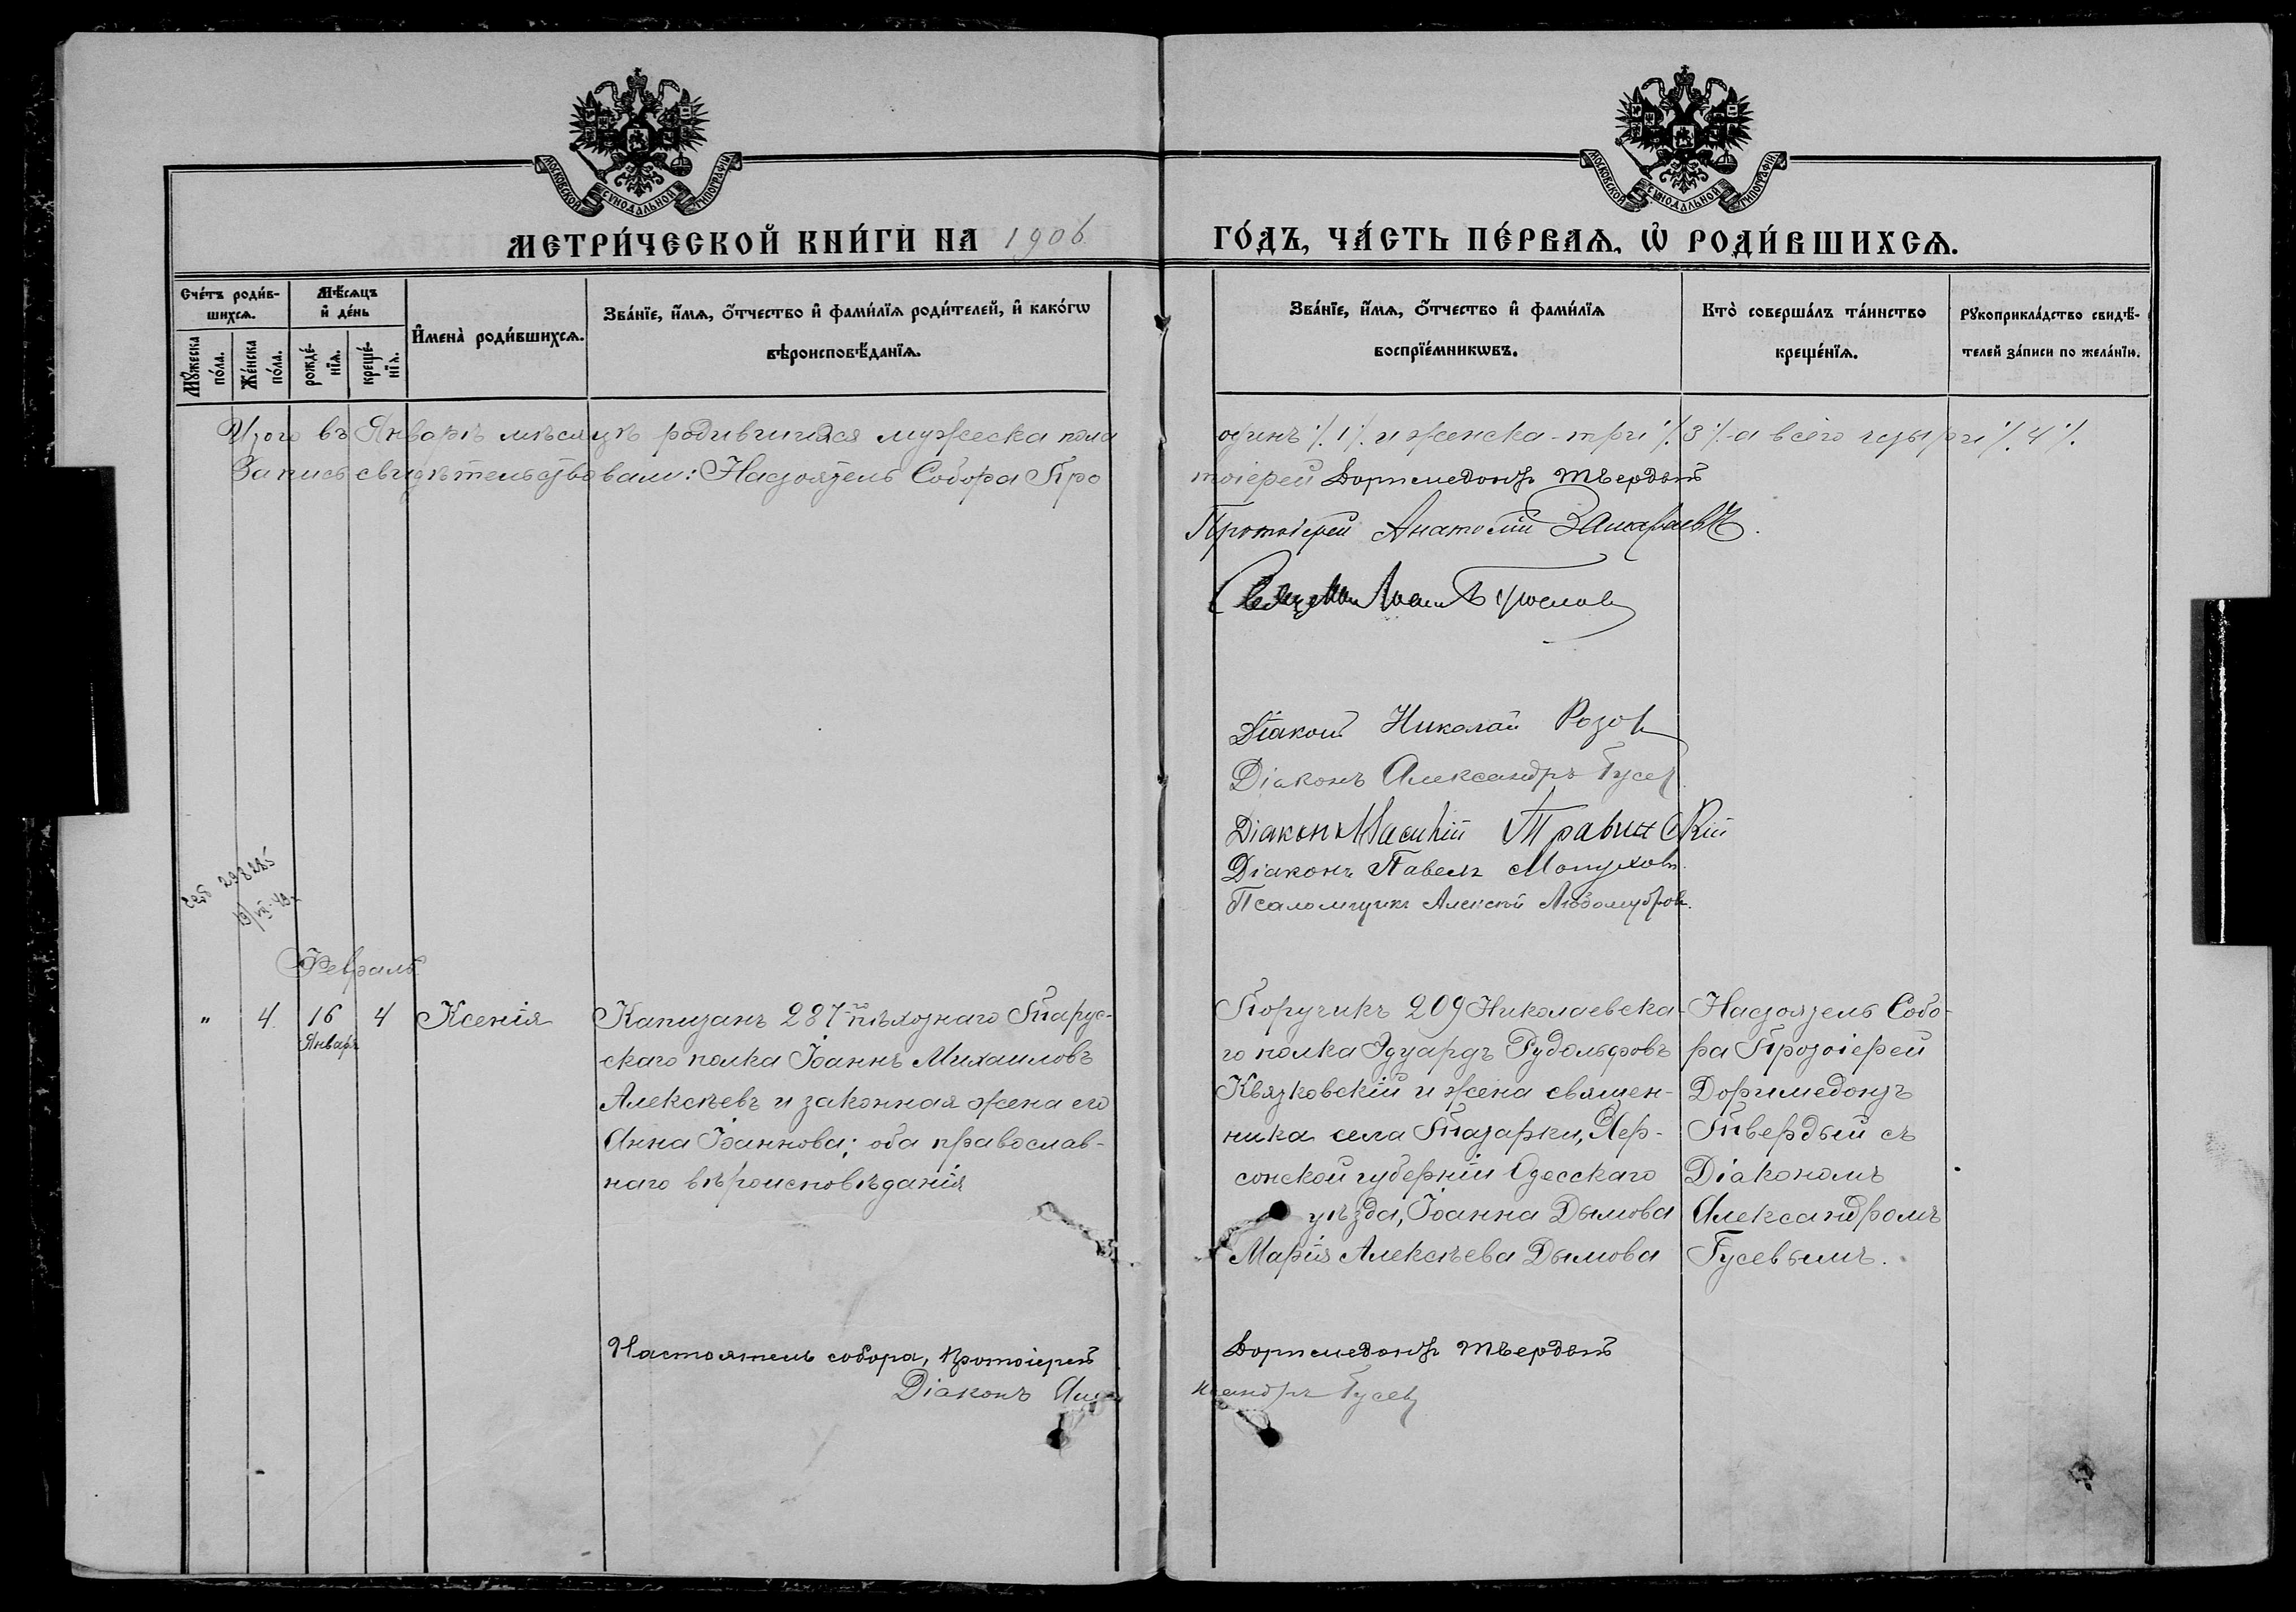 МОСКОВСКОЙ СѴНОДАЛЬНОЙ ТИПОГРАФІИ
МОСКОВСКОЙ СѴНОДАЛЬНОЙ ТИПОГРАФІИ
МЕТРИ́ЧЕСКОЙ КНИ́ГИ НА 1906 ГО́ДЪ, ЧА́СТЬ ПЕ́РВАѦ, Ѡ҆ РОДИ́ВШИХСѦ.
Сче́тъ роди́в-
шихсѧ.
Мꙋ́жеска по́ла.
Же́нска по́ла.
Мѣ́сѧцъ
и҆ де́нь
рожде́-
нїѧ.
креще́-
нїѧ.
И҆мена̀ роди́вшихсѧ.
Зва́нїе, и҆́мѧ, ѻ҆́тчество и҆ фами́лїѧ роди́телей, и҆ како́гѡ
вѣроисповѣ́данїѧ.
Зва́нїе, и҆́мѧ, ѻ҆́тчество и҆ фами́лїѧ
воспрїе́мникѡвъ.
Кто̀ соверша́лъ та́инство
креще́нїѧ.
Рꙋкоприкла́дство свидѣ́-
телей за́писи по жела́нїю.
Итого въ Январѣ мѣсяцѣ родившихся мужеска пола одинъ ٪ 1 ٪ и женска - три ٪ 3 ٪ а всего четыри ٪ 4 ٪
Запись свидѣтельствовали: Настоятель Собора Про
тоіерей Доримедонтъ Твердый
Протоіерей Анатолій
Діаконъ Николай Розовъ
Діаконъ Александръ Гусевъ
Діаконъ Василій Травинскій
Діаконъ Павелъ
Псаломщикъ Алексѣй Любомудровъ.
298285
Февраль
" 4 16 4 Ксенія
Январь
Капитанъ 287-го пѣхотнаго Тарус-
скаго полка Іоаннъ Михаиловъ
Алексѣевъ и законная жена его
Анна Іоаннова; оба православ-
наго вѣроисповѣданія
Поручикъ 209 Николаевска-
го полка Эдуардъ Рудольфовъ
Квятковскій и жена священ-
ника села Татарки, Хер-
сонской губерніи Одесскаго
уѣзда, Іоанна Дымова
Марія Алексѣева Дымова
Настоятель Собо-
ра Протоіерей
Доримедонтъ
Твердый съ
Діакономъ
Александромъ
Гусевымъ.
Настоятель собора, протоіерей Доримедонтъ Твердый
Діаконъ Александръ Гусевъ